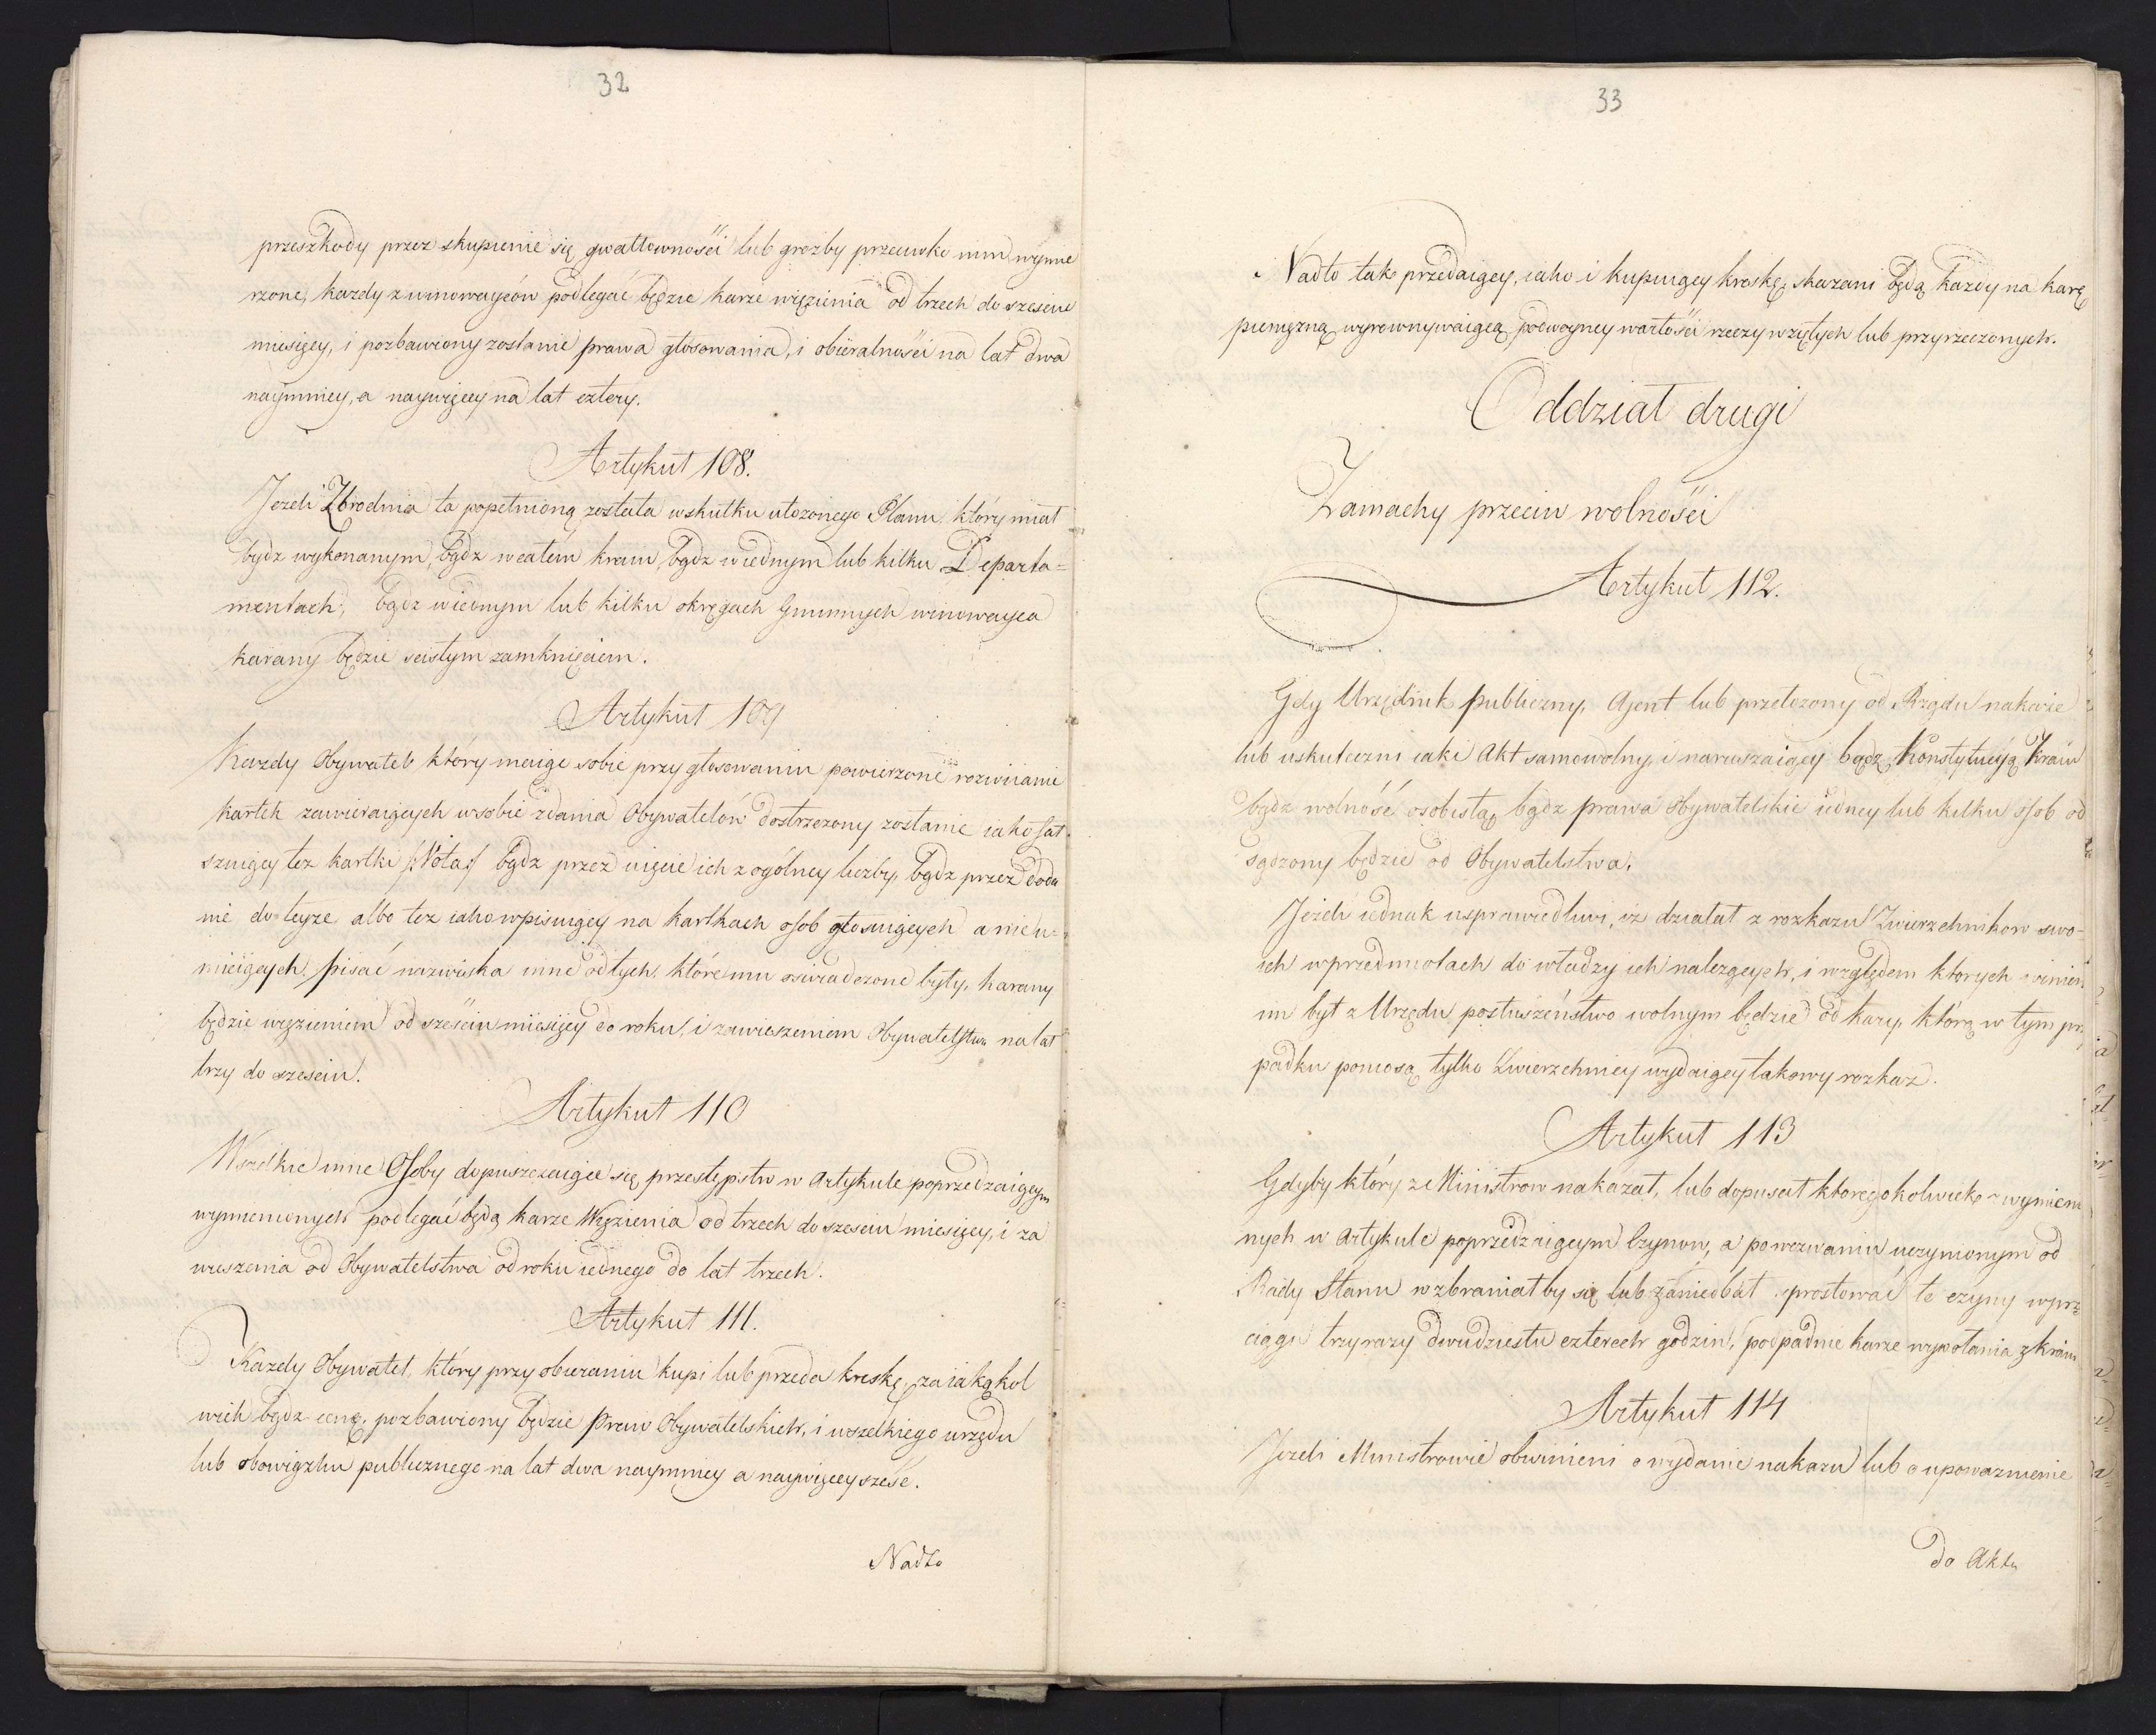 32
przeszkody przez skupienie się gwałtowności lub groźby przeciwko nim wymie
rzone, każdy z winowayców podlegać będzie karze więzienia od trzech do sześciu
miesięcy, i pozbawiony zostanie prawa głosowania, i obieralności na lat dwa
naymniey, a naywięcey na lat cztery.
Artykuł 108.
Jeżeli Zbrodnia ta popełnioną została wskutku ułożonego Planu, który miał
bydź wykonanym, bądź wcałém kraiu, bądź wiednym lub kilku Departa=
mentach, bądź wiednym lub kilku okręgach Gminnych winowayca
karany będzie ścisłym zamknięciem.
Artykuł 109
Każdy Obywatel który maiąc sobie przy głosowaniu powierzone rozwiianie
kartek zawieraiących wsobie zdania Obywatelów dostrzeżony zostanie iako fał
szuiący też kartki /:Vota:/ bądź przez uięcie ich z ogólney liczby, bądź przez doda
nie do teyże albo też iako wpisuiący na kartkach osob głosuiących a nieu=
mieiących pisać nazwiska inne od tych, które mu oświadczone były, karany
będzie więzieniem od sześciu miesięcy do roku, i zawieszeniem Obywatelstwa na lat
trzy do sześciu.
Artykuł 110
Wszelkie inne Osoby dopuszczaiące się przestępstw w Artykule poprzedzaiącym
wymienionych podlegać będą karze Więzienia od trzech do sześciu miesięcy, i za
wieszenia od Obywatelstwa od roku iednego do lat trzech.
Artykuł 111.
Każdy Obywatel, który przy obieraniu kupi lub przeda kreskę, za iakąkol
wiek bądź cenę, pozbawiony będzie Praw Obywatelskich, i wszelkiego urzędu
lub obowiązku publicznego na lat dwa naymniey a naywięcey sześć.
Nadto
33
Nadto tak przedaiący, iako i kupuiący kreskę, skazani będą każdy na karę
pieniężną wyrownywaiącą podwoyney wartości rzeczy wziętych lub przyrzeczonych.
Oddział drugi
Zamachy przeciw wolności
Artykuł 112.
Gdy Urzędnik publiczny, Ajent lub przełożony od Rządu nakaże
lub uskuteczni iaki Akt samowolny, i naruszaiący bądź Konstytucyą Kraiu
bądź wolność osobistą, bądź prawa Obywatelskie iedney lub kilku osob od
sądzony będzie od Obywatelstwa.
Jeżeli iednak usprawiedliwi, iż działał z rozkazu Zwierzchnikow swo=
ich wprzedmiotach do władzy ich należących, i względem których winien
im był z Urzędu posłuszeństwo wolnym będzie od kary, którą w tym prz
padku poniosą tylko Zwierzchnicy wydaiący takowy rozkaz.
Artykuł 113
Gdyby który z Ministrow nakazał, lub dopuścił któregokolwiek z wymienio
nych w Artykule poprzedzaiącym Czynow, a po wezwaniu uczynionym od
Rady Stanu wzbraniałby się lub zaniedbał sprostować te czyny wprze
ciągu trzy razy dwudziestu czterech godzin, podpadnie karze wywołania z kraiu
Artykuł 114
Jeżeli Ministrowie obwinieni o wydanie nakazu lub o upoważnienie
do Aktu